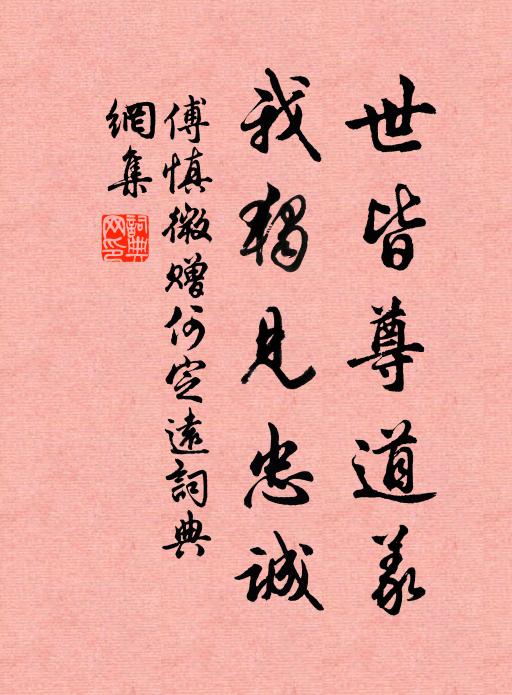 世皆尊道義
我獨見忠誠
傅慎微贈何定遠詞典
網集
詞典網印